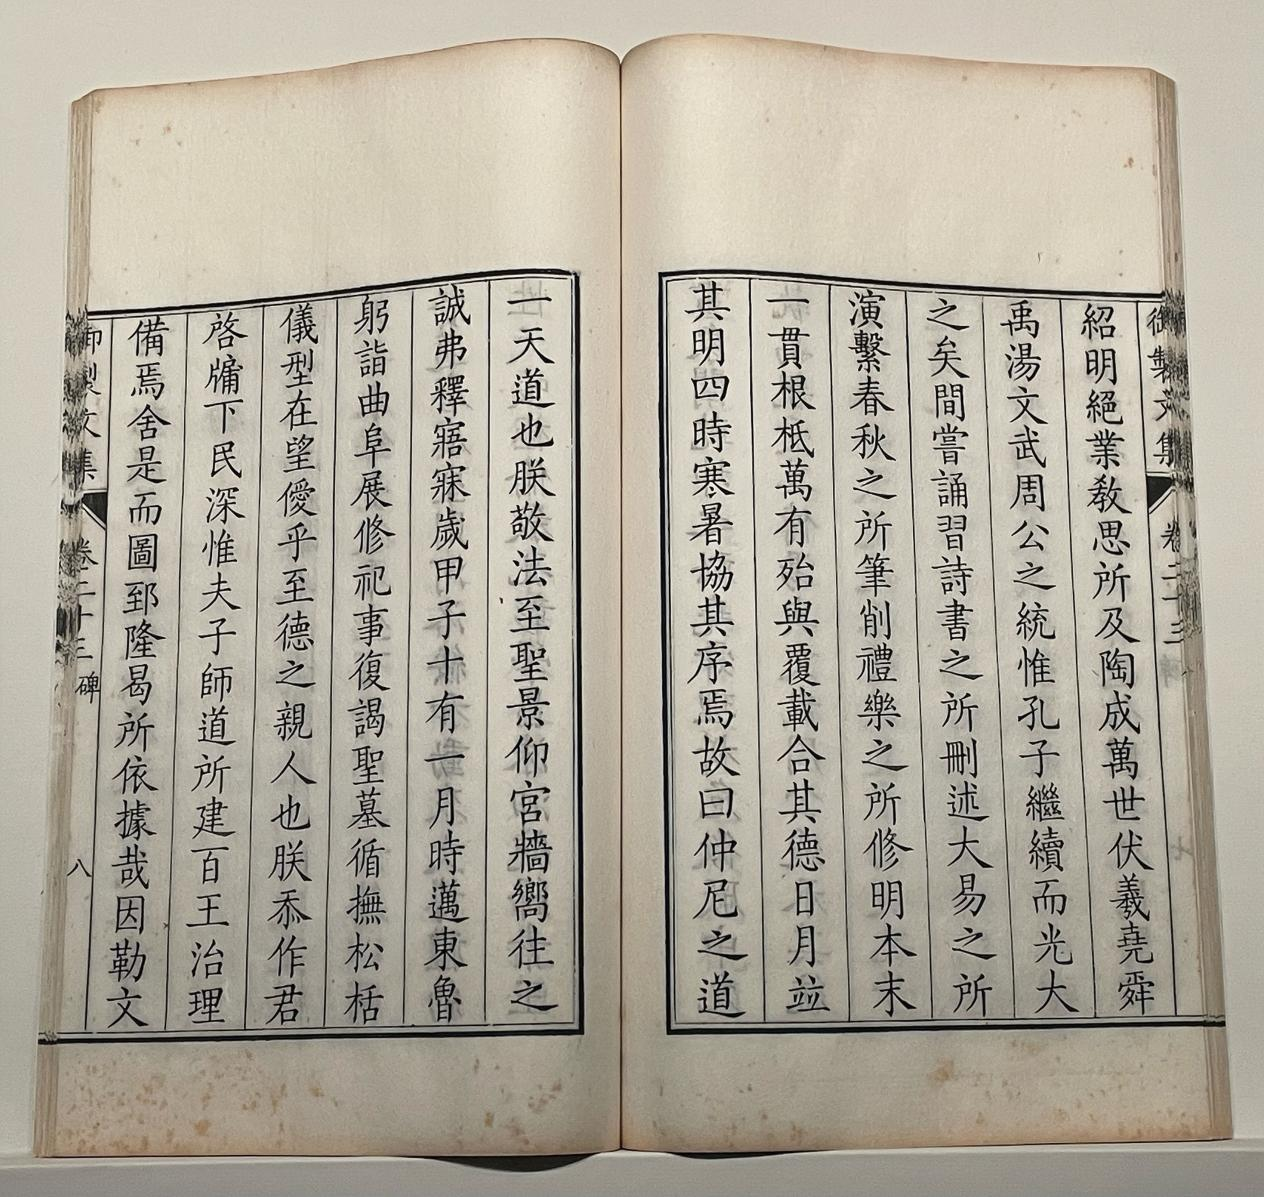 御製文集 卷二十三
紹明絕業教思所及陶成萬世伏羲堯舜
禹湯文武周公之統惟孔子繼續而光大
之矣間嘗誦習詩書之所刪述大易之所
演繫春秋之所筆削禮樂之所修明本末
一貫根柢萬有殆與覆載合其德日月竝
其明四時寒暑協其序焉故曰仲尼之道
一天道也朕敬法至聖景仰宮牆嚮往之
誠弗釋寤寐歲甲子十有一月時邁東魯
躬詣曲阜展修祀事復謁聖墓循撫松栝
儀型在望僾乎至德之親人也朕忝作君
啓牖下民深惟夫子師道所建百王治理
備焉舍是而圖郅隆曷所依據哉因勒文
御製文集 卷二十三 碑 八